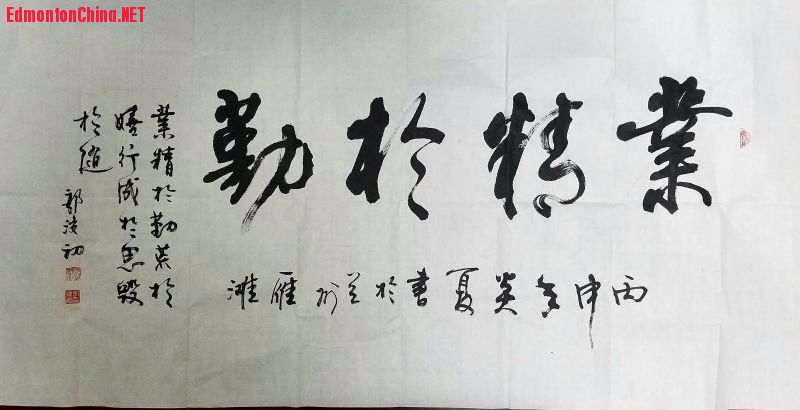 EdmontonChina.NET
業精於勤
丙申年炎夏書於兰州雁滩
業精於勤荒於
嬉行成於思毀
於随
郭 初